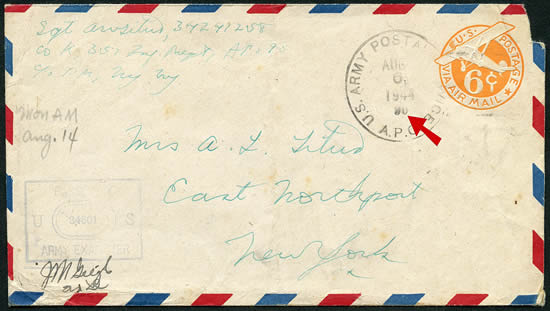 Sgt 34241258
Co K, 357 Inf. Regt, APO 90
c/o P.M., NY NY
U.S. ARMY POSTAL
AUG
1944
90
A.P.O.
U.S. POSTAGE
6¢
VIA AIR MAIL
Mon AM
Aug. 14
Mrs A. L. Titus
East Northport
New York
U S
34601
ARMY EXAMINER